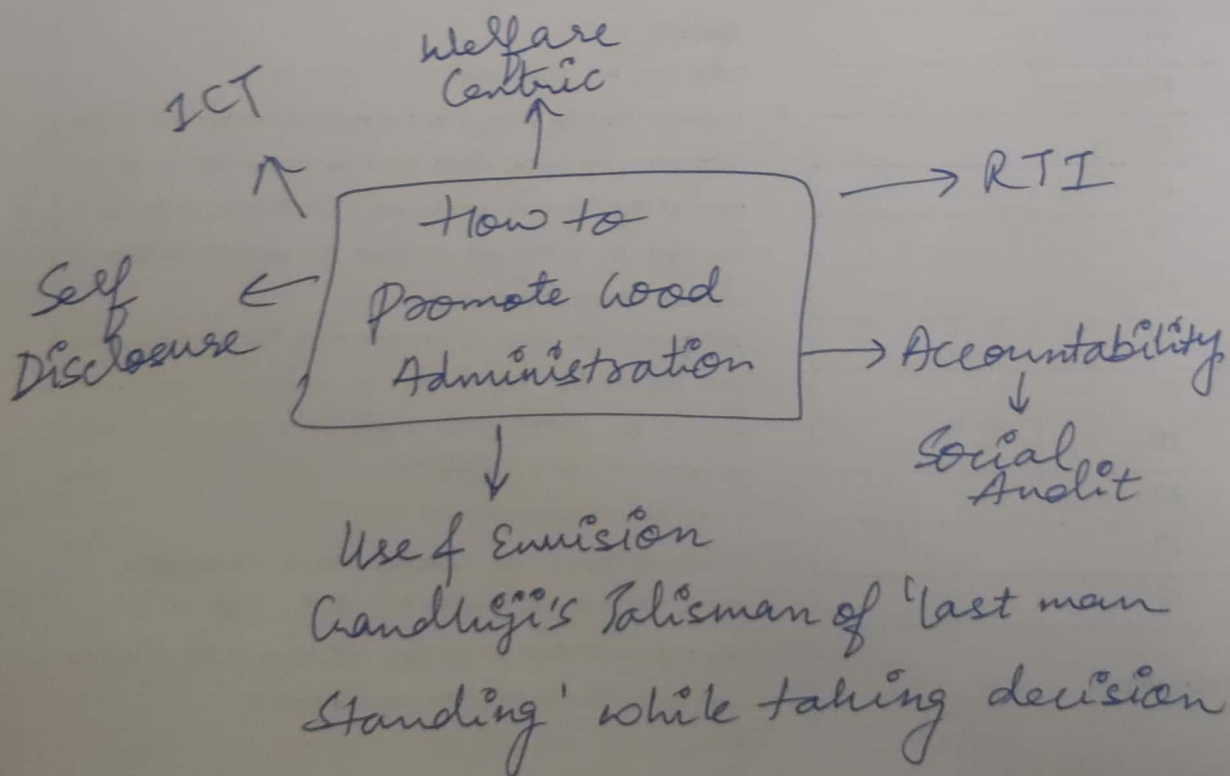 Welfare
Centric
ICT
RTI
How to
Promote Good
Administration
Self
Disclosure
Accountability
Social
Audit
Use & Envision
Gandhiji's Talisman of 'last man
Standing' while taking decision